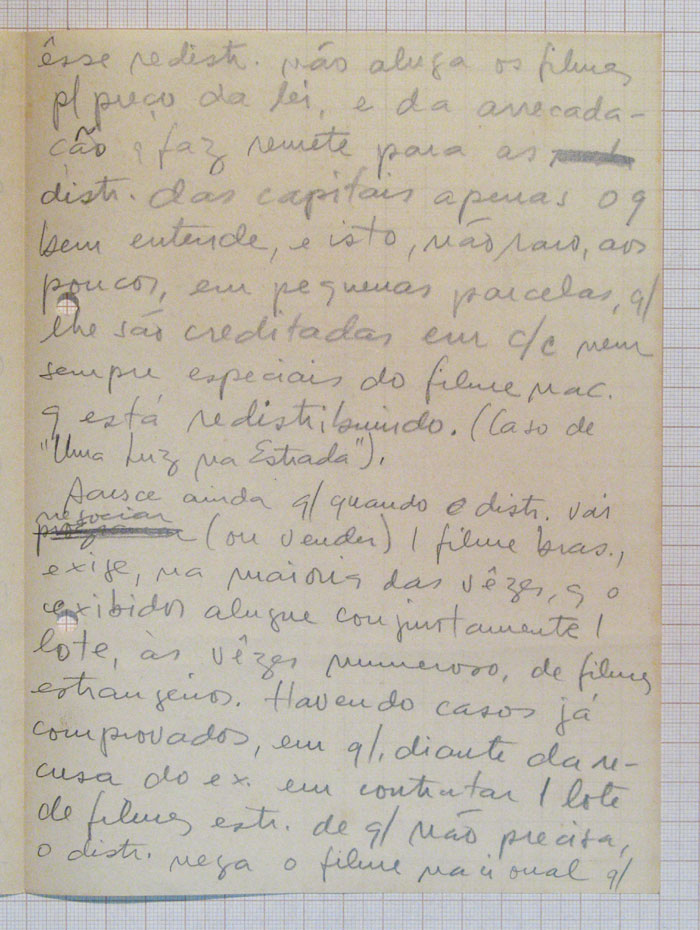 êsse redistr. não aluga os filmes
p/ preço da lei, e da arrecada-
ção q faz remete para as
distr. das capitais apenas o q
bem entende, e isto, não raro, aos
poucos, em pequenas parcelas, q/
lhe são creditadas em c/c nem
sempre especiais do filme nac.
q está redistribuindo. (Caso de
"Uma Luz na Estrada").
Acresce ainda q/ quando o distr. vai
negociar
programar (ou vender) 1 filme bras.,
exige, na maioria das vêzes, q o
exibidor alugue conjuntamente 1
lote, às vêzes numeroso, de filmes
estrangeiros. Havendo casos já
comprovados, em q/, diante da re-
cusa do ex. em contratar 1 lote
de filmes estr. de q/ não precisa,
o distr. nega o filme nacional q/